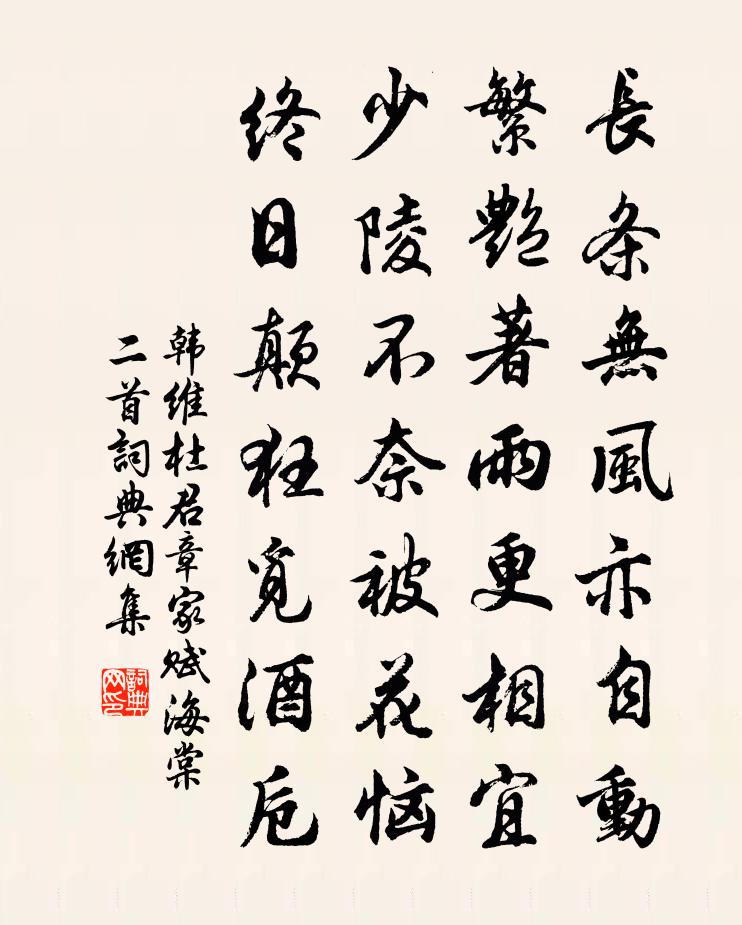 長条無風亦自動
繁艷著雨更相宜
少陵不奈被花恼
终日颠狂觅酒卮
韩维杜君章家赋海棠
二首詞典網集
詞典
网印